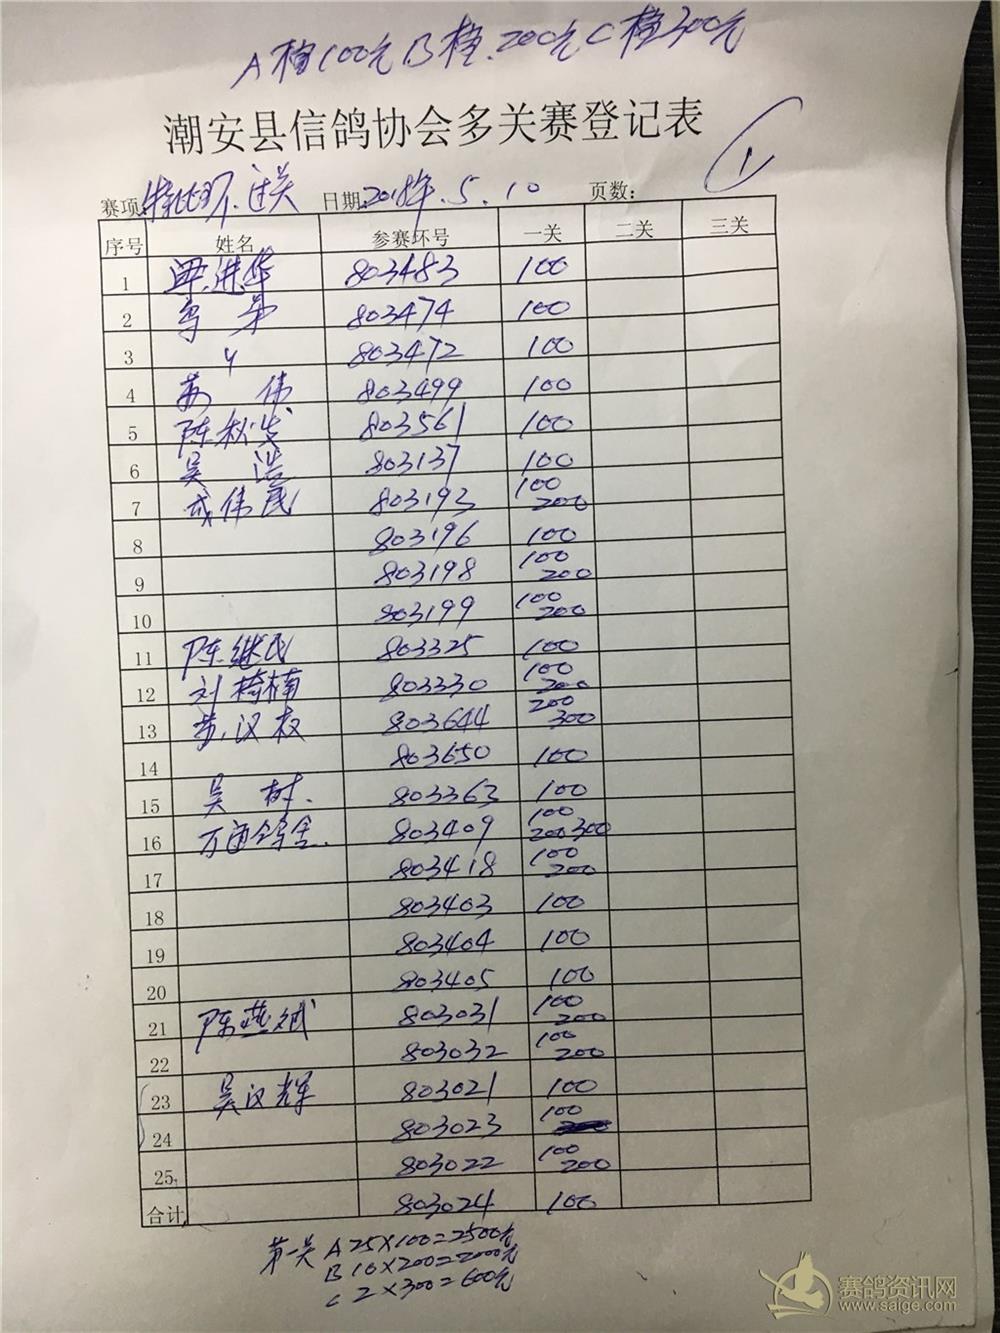 A档100元B档.200元C档300元
潮安县信鸽协会多关赛登记表
1
赛项:特比环.过关 日期:2018年.5.10 页数:
序号 姓名 参赛环号 一关 二关 三关
1 梁进华 803483 100
2 803474 100
3 〃 803472 100
4 苏伟 803499 100
5 陈秋发 803561 100
6 吴浩 803137 100
7 成伟民 803193 100 200
8 803196 100
9 803198 100 200
10 803199 100 200
11 陈继民 803325 100
12 刘椅楠 803330 100 200
13 苏汉权 803644 200 300
14 803650 100
15 吴树. 803363 100
16 万通鸽舍. 803409 100 200 300
17 803418 100 200
18 803403 100
19 803404 100
20 803405 100
21 陈燕斌 803031 100 200
22 803032 100 200
23 吴汉辉 803021 100
24 803023 100
25 803022 100 200
合计 803024 100
第一关 A25×100=2500元
B10×200=2000元
C2×300=600元
赛鸽资讯网
www.saige.com